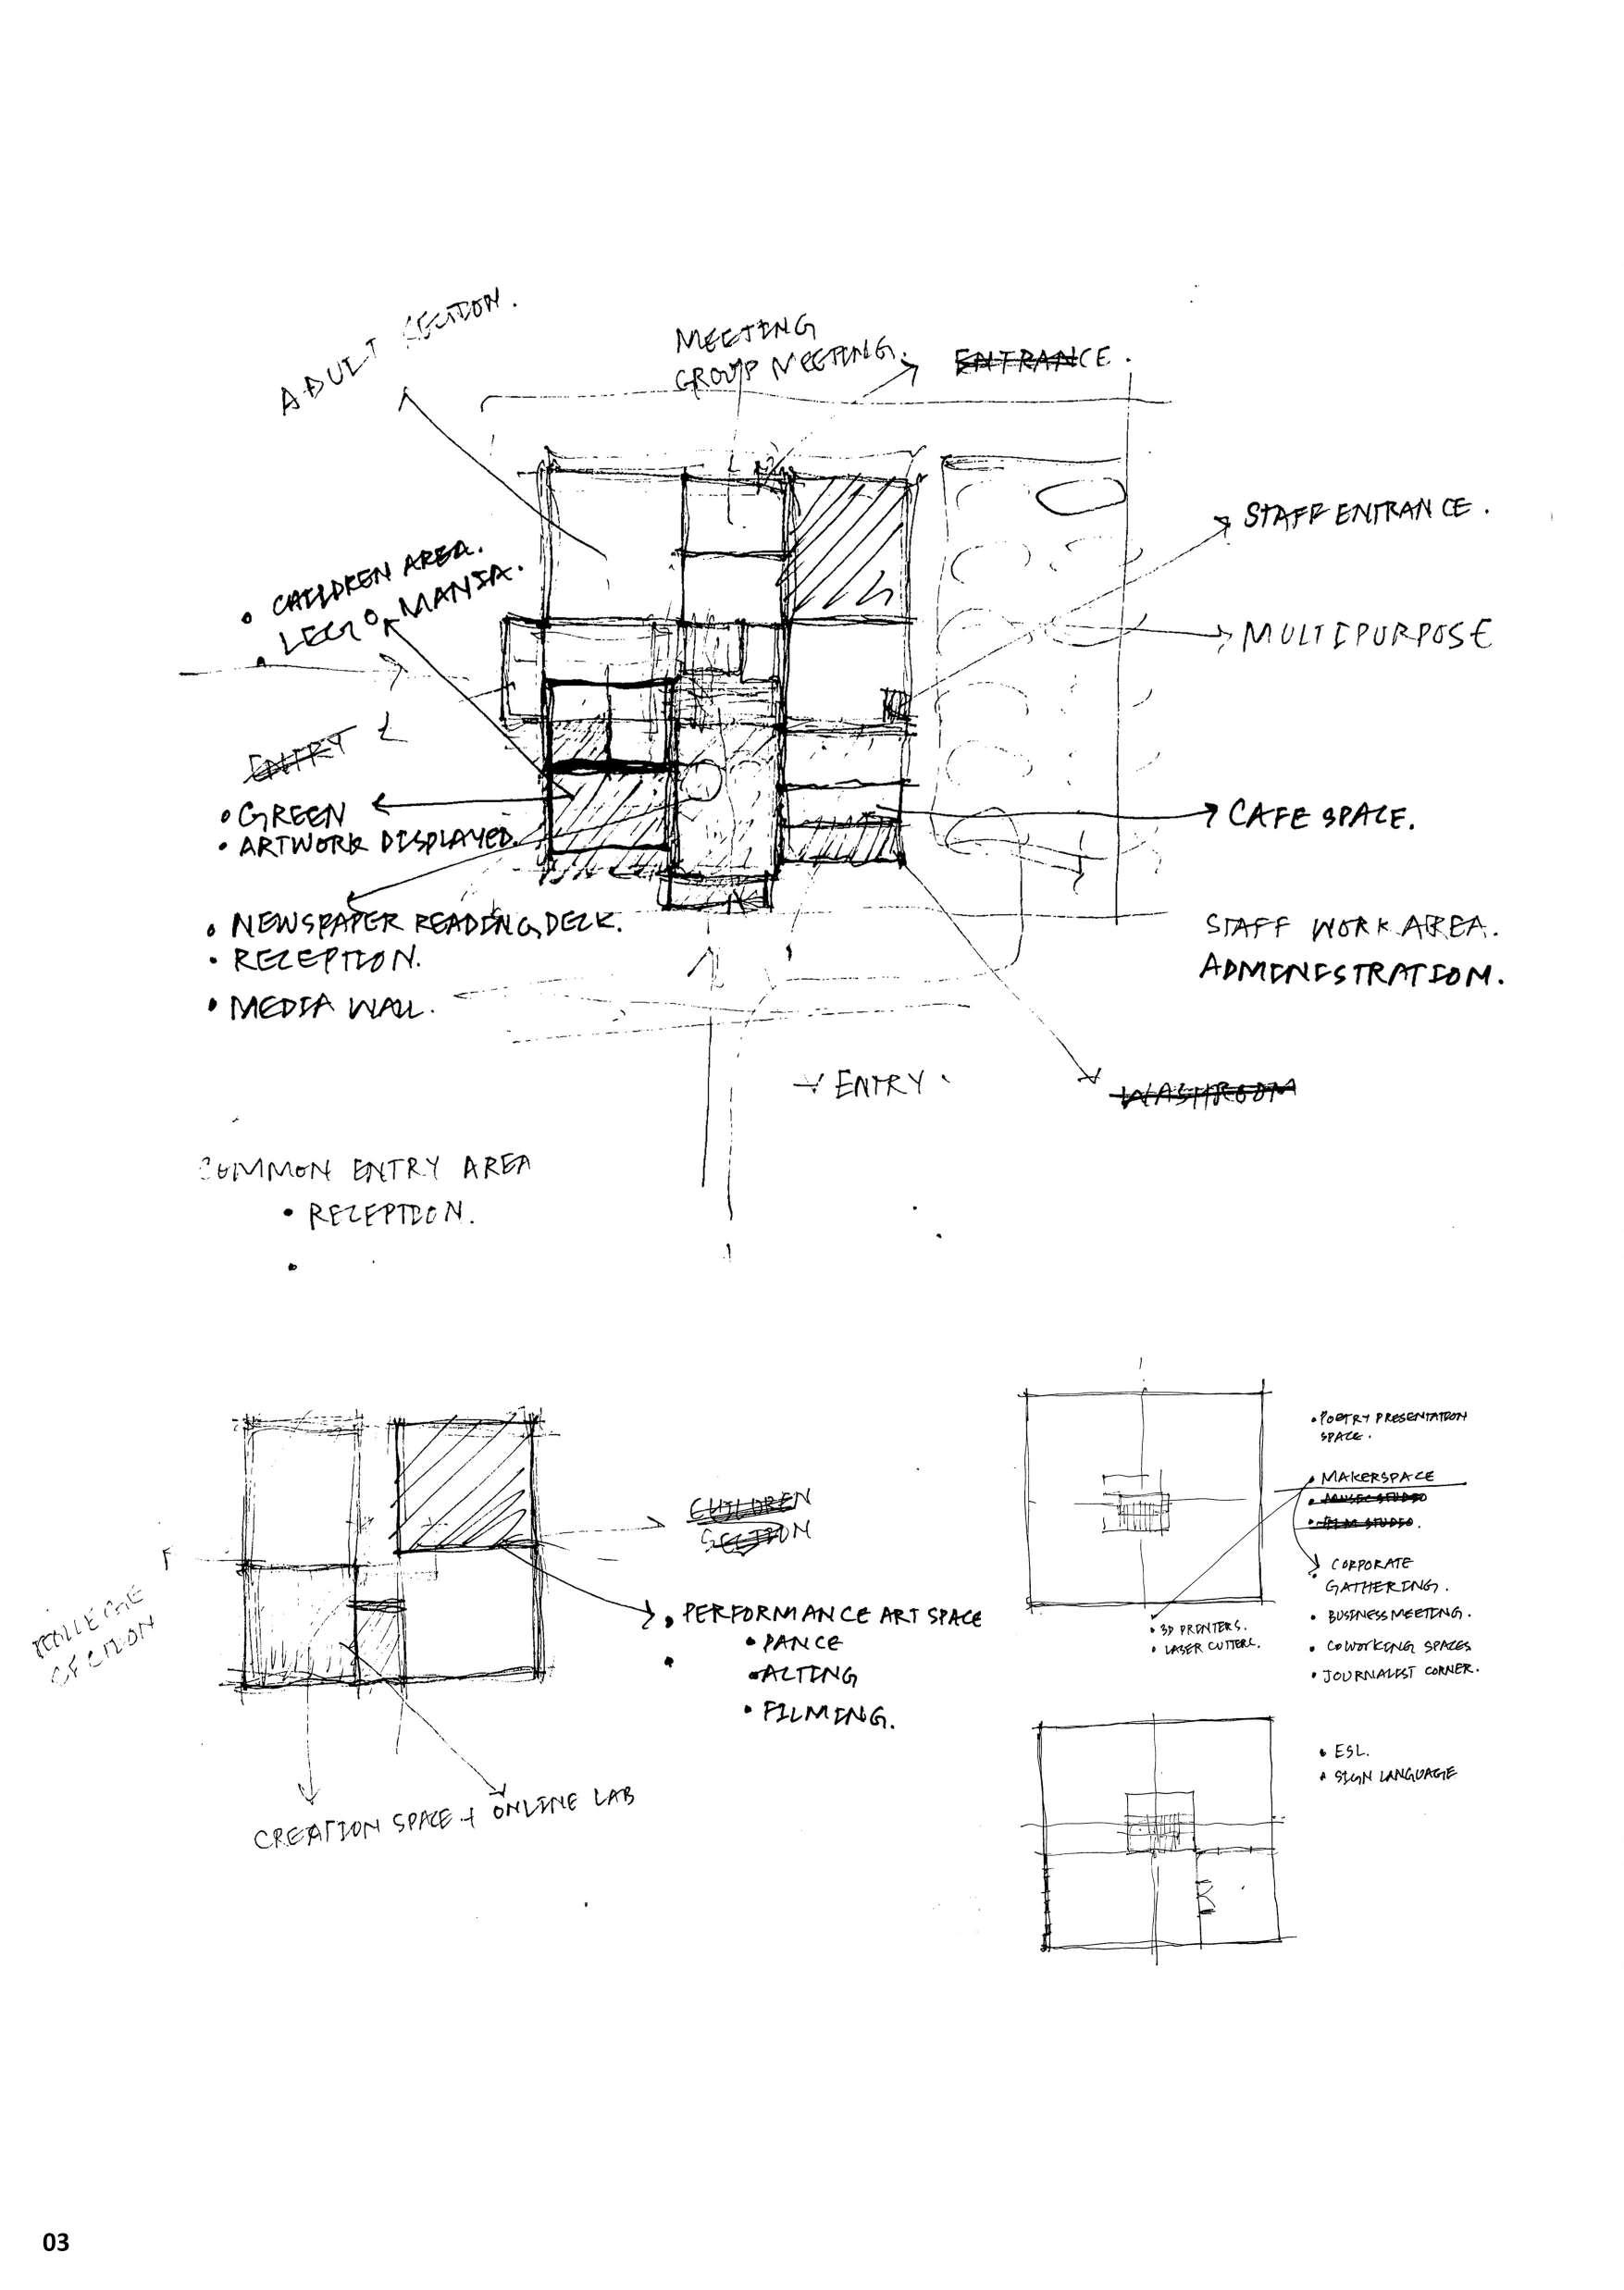 ADULT SECTION.
MEETING
GROUP MEETING.
ENTRANCE.
STAFF ENTRANCE.
• CHILDREN AREA.
LEGO MANIA.
MULTIPURPOSE
ENTRY
• GREEN
• ARTWORK DISPLAYED.
CAFE SPACE.
• NEWSPAPER READING DECK.
• RECEPTION.
• MEDIA WALL.
STAFF WORK AREA.
ADMINISTRATION.
ENTRY.
WASHROOM
COMMON ENTRY AREA
• RECEPTION.
•
• POETRY PRESENTATION
SPACE.
• MAKERSPACE
• MUSIC STUDIO
• FILM STUDIO.
CHILDREN
SECTION
• CORPORATE
GATHERING.
• BUSINESS MEETING.
• COWORKING SPACES
• JOURNALIST CORNER.
• 3D PRINTERS.
• LASER CUTTERS.
SECTION
• PERFORMANCE ART SPACE
• DANCE
• ACTING
• FILMING.
• ESL.
• SIGN LANGUAGE
CREATION SPACE + ONLINE LAB
03